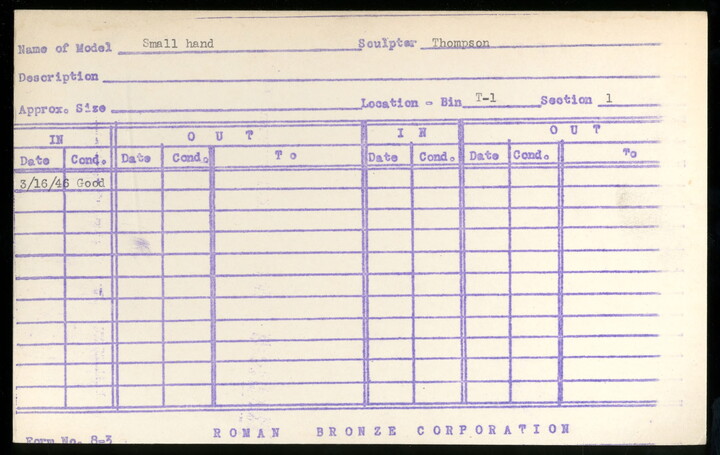 Name of Model Small hand Sculptor Thompson
Description
Approx. Size Location - Bin T-1 Section 1
IN OUT IN OUT
Date Cond. Date Cond. To Date Cond. Date Cond. To
3/16/46 Good
Form No. 8-3 ROMAN BRONZE CORPORATION